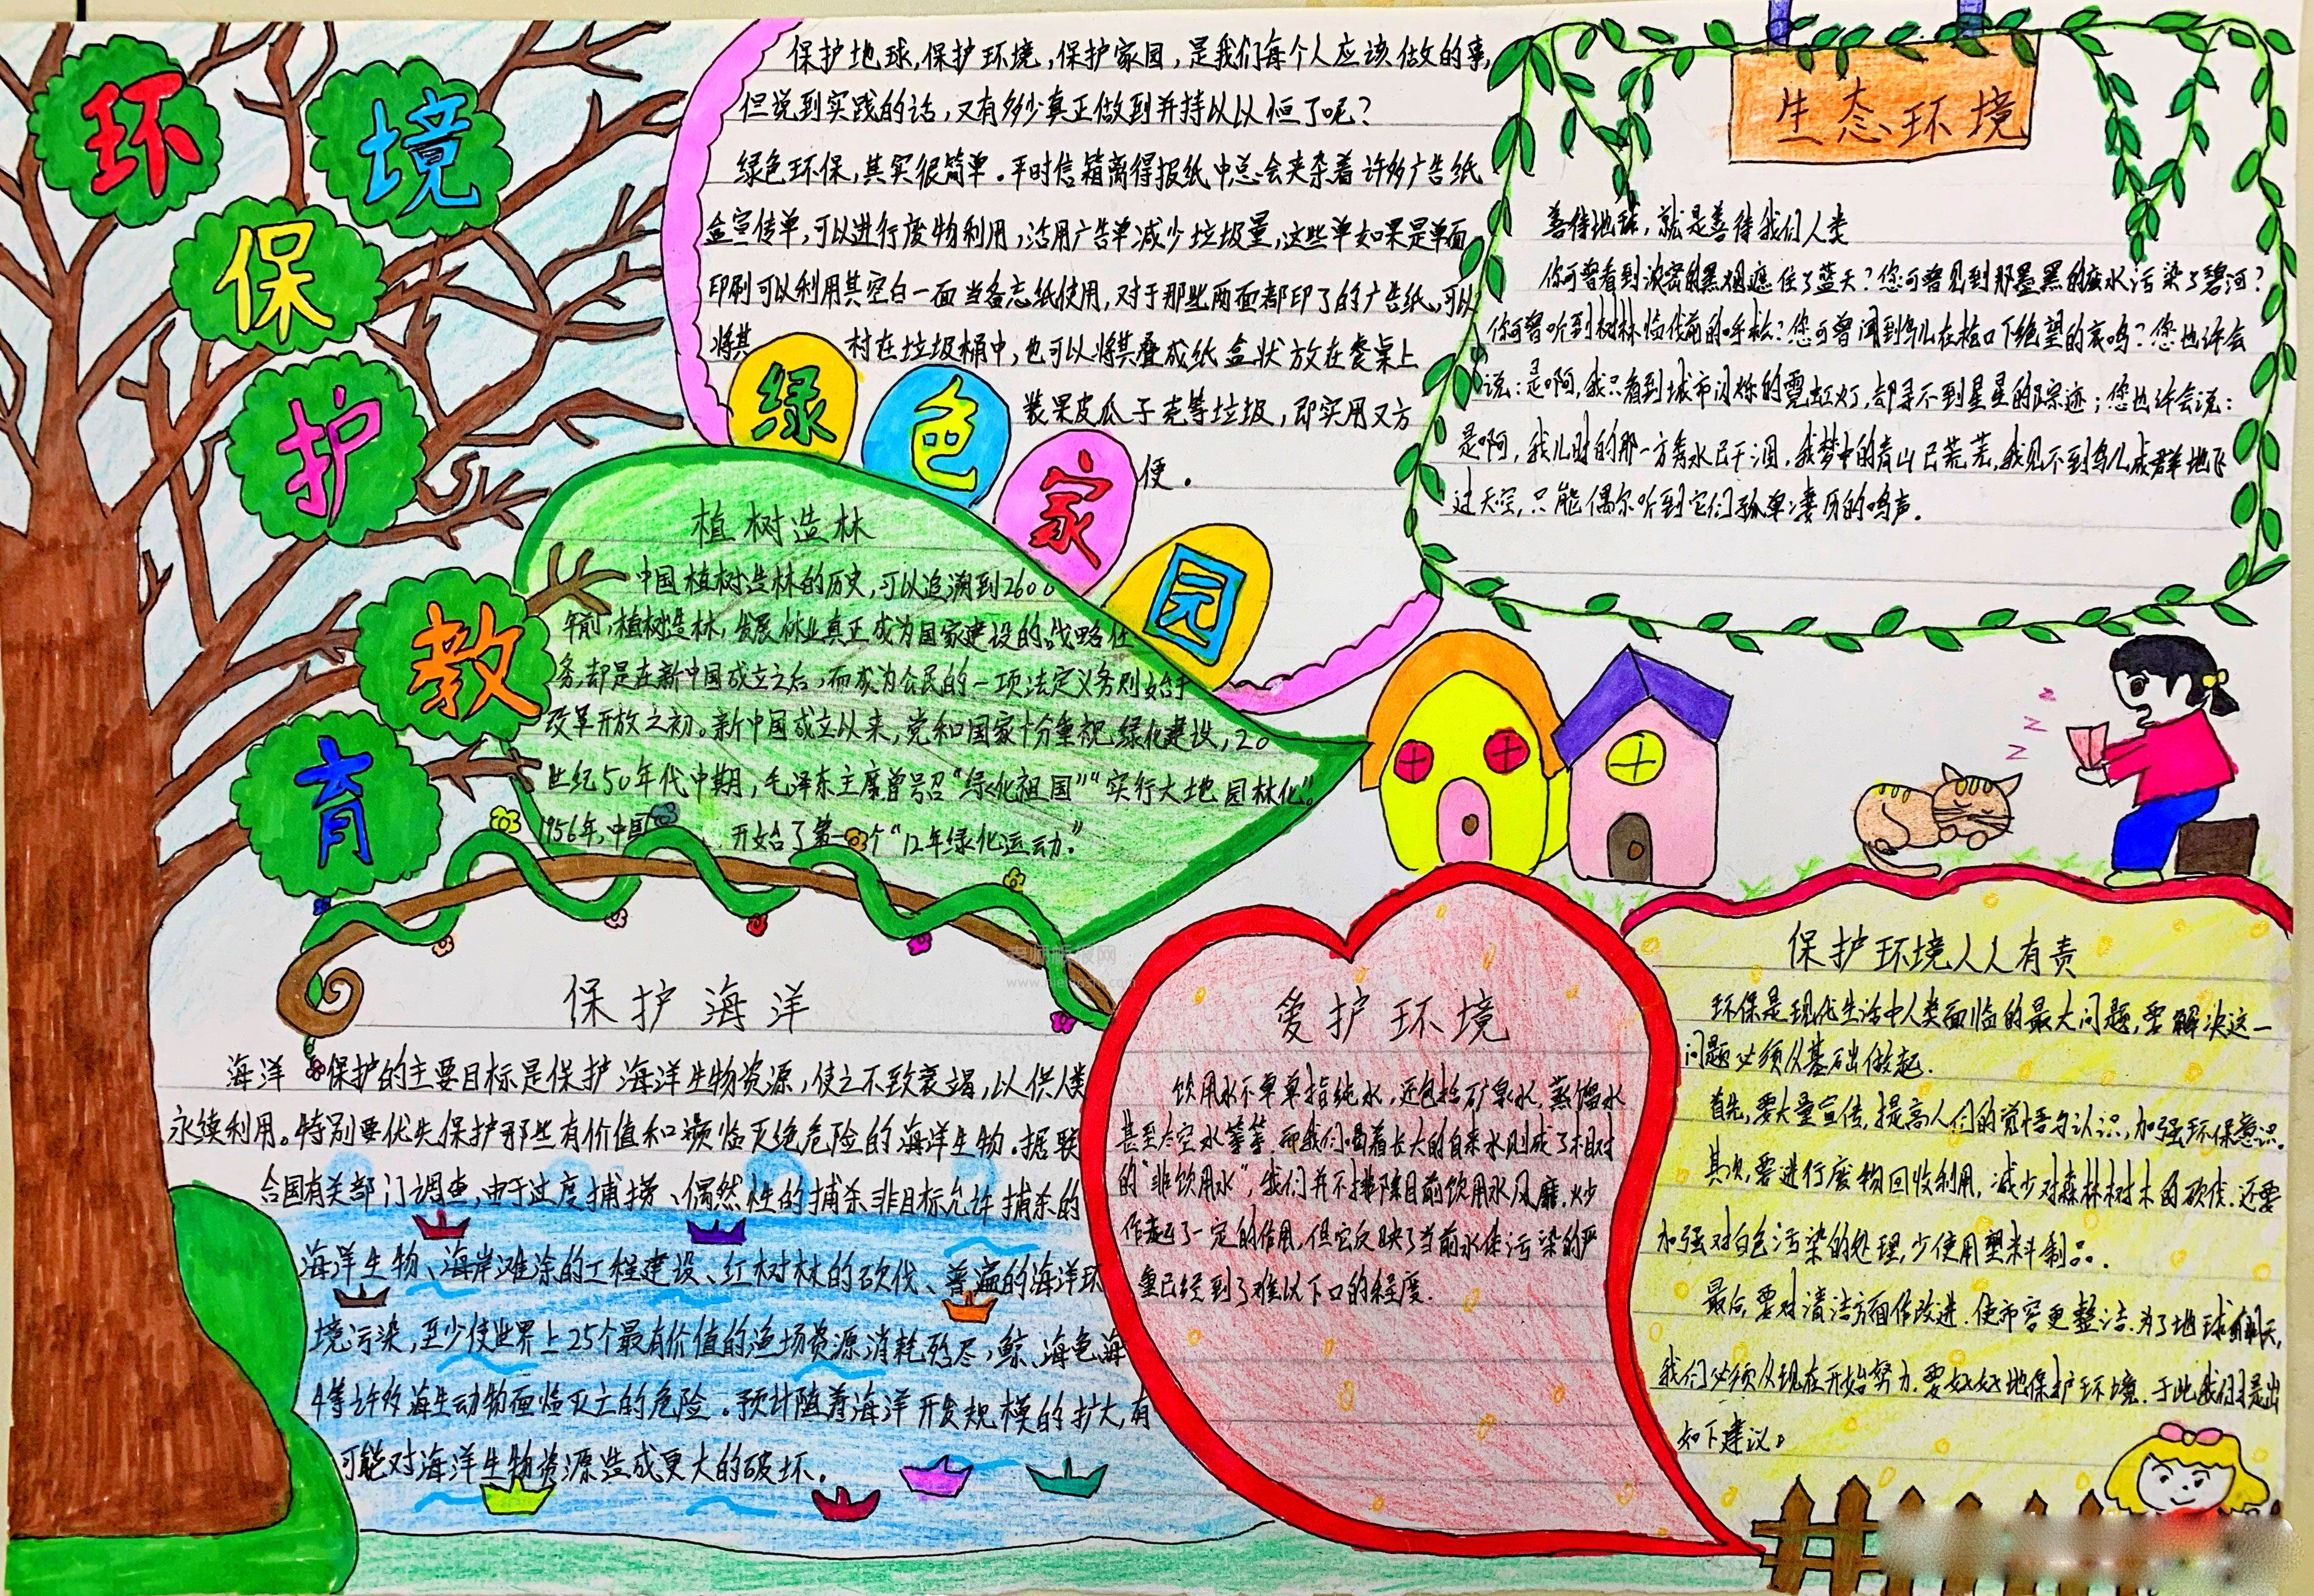 环境保护教育
保护地球,保护环境,保护家园,是我们每个人应该做的事,
但说到实践的话,又有多少真正做到并持以以恒了呢?
绿色环保,其实很简单.平时信箱离得报纸中总会夹杂着许多广告纸
盒宣传单,可以进行废物利用,活用广告单减少垃圾量,这些单如果是单面
印刷可以利用其空白一面当备忘纸使用,对于那些两面都印了的广告纸,可以
将其 村在垃圾桶中,也可以将其叠成纸盒状放在餐桌上
装果皮瓜子壳等垃圾,即实用又方
便.
绿色家园
生态环境
善待地球,就是善待我们人类
你可曾看到浓密的黑烟遮住了蓝天?您可曾见到那墨黑的废水污染了碧河?
你可曾听到树林临伐前的呼救?您可曾闻到鸟儿在枪口下绝望的哀鸣?您也许会
说:是啊,我只看到城市闪烁的霓虹灯,却寻不到星星的踪迹;您也许会说:
是啊,我儿时的那一方秀水已干涸,我梦中的青山已荒芜,我见不到鸟儿成群地飞
过天空,只能偶尔听到它们孤单凄厉的鸣声.
植树造林
中国植树造林的历史,可以追溯到2600
年前,植树造林,发展林业真正成为国家建设的战略任
务,却是在新中国成立之后,而成为公民的一项法定义务则始于
改革开放之初。新中国成立以来,党和国家十分重视绿化建设,20
世纪50年代中期,毛泽东主席曾号召“绿化祖国”“实行大地园林化”。
1956年,中国 开始了第一个“12年绿化运动.”
保护海洋
海洋 保护的主要目标是保护海洋生物资源,使之不致衰竭,以供人类
永续利用。特别要优先保护那些有价值和濒临灭绝危险的海洋生物.据联
合国有关部门调查,由于过度捕捞、偶然性的捕杀非目标允许捕杀的
海洋生物、海岸滩涂的工程建设、红树林的砍伐、普遍的海洋环
境污染,至少使世界上25个最有价值的渔场资源消耗殆尽,鲸、海龟海
牛等许多海生动物面临灭亡的危险.预计随着海洋开发规模的扩大,有
可能对海洋生物资源造成更大的破坏.
爱护环境
饮用水不单单指纯水,还包括矿泉水,蒸馏水
甚至太空水等等,而我们喝着长大的自来水则成了相对
的“非饮用水”,我们并不排除目前饮用水风靡.炒
作起了一定的作用,但它反映了当前水体污染的严
重已经到了难以下口的程度.
保护环境人人有责
环保是现代生活中人类面临的最大问题,要解决这一
问题必须从基础做起.
首先,要大量宣传,提高人们的觉悟与认识,加强环保意识.
其次,要进行废物回收利用,减少对森林树木的砍伐.还要
加强对白色污染的处理,少使用塑料制品.
最后,要对清洁方面作改进.使市容更整洁.为了地球的明天,
我们必须从现在开始努力.要好好地保护环境.于此我们提出
如下建议。